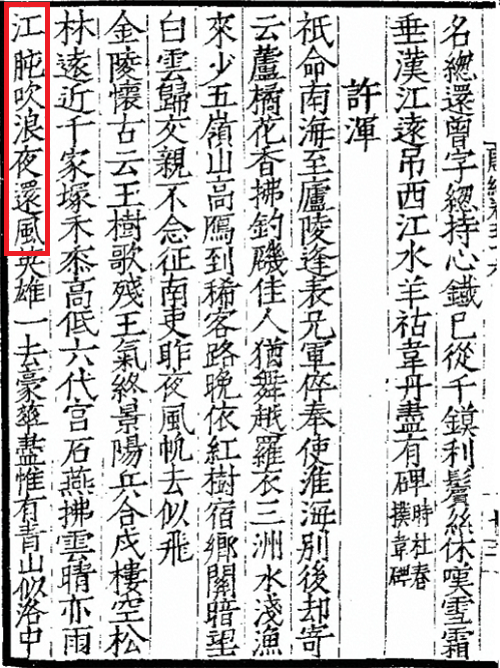 名總還曾字總持心鐵巳從千鏌利鬢絲休嘆雪霜
垂漢江遠吊西江水羊祜韋丹盡有碑時杜春撰韋碑
許渾
祇命南海至廬陵逢表兄軍倅奉使淮海別後却寄
云蘆橘花香拂釣磯佳人猶舞越羅衣三洲水淺漁
來少五嶺山高鴈到稀客路晚依紅樹宿鄉關暗望
白雲歸交親不念征南吏昨夜風帆去似飛
金陵懷古云王樹歌殘王氣終景陽兵合戍樓空松
林遠近千家塚禾黍高低六代宮石燕拂雲晴亦雨
江肫吹浪夜還風英雄一去豪華盡惟有青山似洛中